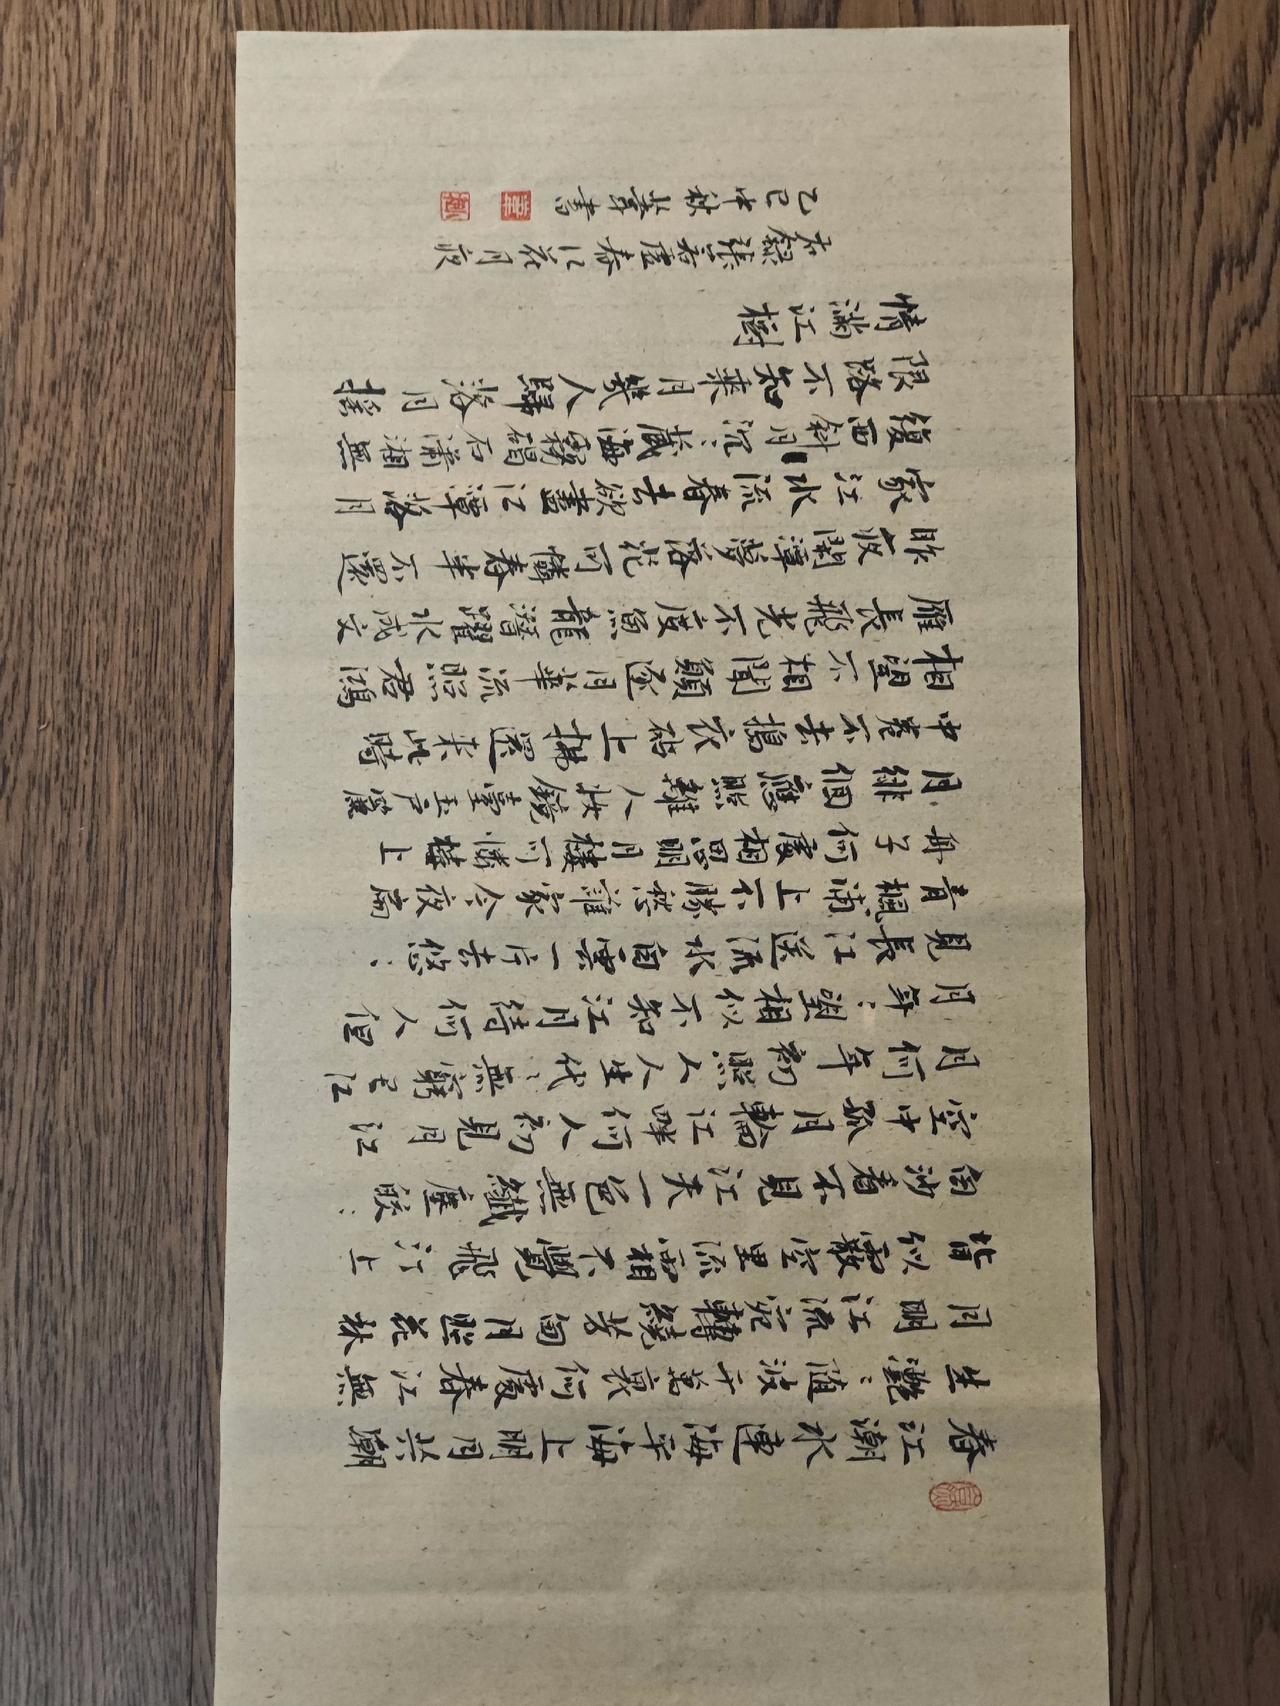 春江潮水連海平海上明月共潮
生灧〻随波千萬裏何處春江無
月明江流宛轉繞芳甸月照花林
皆似霰空里流霜不覺飛汀上
白沙看不見江天一色無纖塵皎〻
空中孤月輪江畔何人初見月江
月何年初照人人生代〻無窮已江
月年〻望相似不知江月待何人但
見長江送流水白雲一片去悠〻
青楓浦上不勝愁誰家今夜扁
舟子何處相思明月樓可憐樓上
月徘徊應照離人妝鏡臺玉户簾
中卷不去搗衣砧上拂還來此時
相望不相聞願逐月華流照君鴻
雁長飛光不度魚龍潛躍水成文
昨夜閒潭夢落花可憐春半不還
家江水流春去欲盡江潭落月
復西斜月沉〻藏海霧碣石瀟湘無
限路不知乘月幾人歸落月搖
情滿江樹
右録張若虛春江花月夜
乙巳中秋書